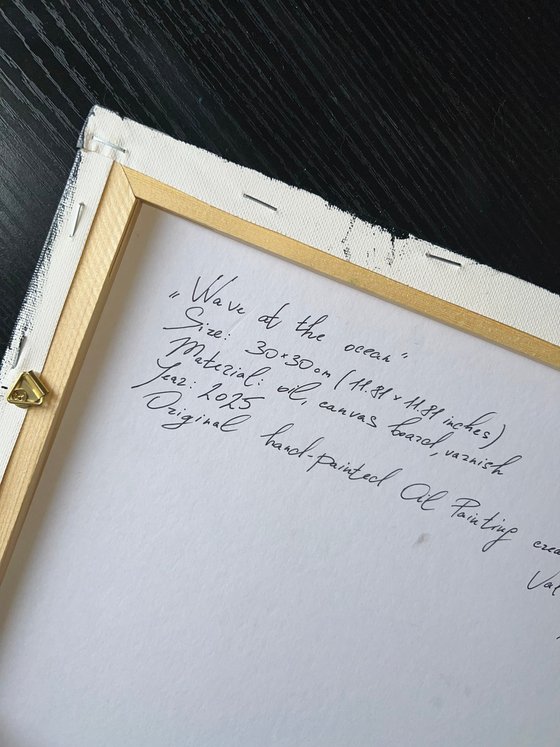 „Wave at the ocean“
Size: 30×30cm (11.81 × 11.81 inches)
Material: oil, canvas board, varnish
Year: 2025
Original hand-painted Oil Painting crea
Val